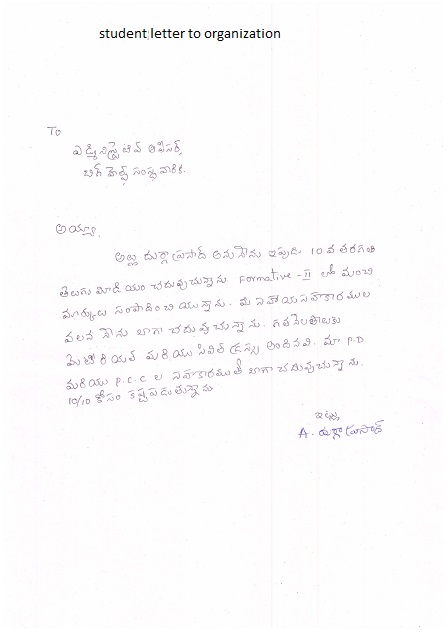 student letter to organization
To
ఎడ్మినిస్ట్రేటివ్ ఆఫీసర్,
బిగ్ హెల్ప్ సంస్థ వారికి.
అయ్యా,
అల్లు దుర్గాప్రసాద్ అను నేను ఇపుడు 10వ తరగతి
తెలుగు మీడియం చదువుచున్నాను. Formative-II లో మంచి
మార్కులు సంపాదించియున్నాను. మీ సహాయసహకారముల
వలన నేను బాగా చదువుచున్నాను. గతనెల
మెటీరియల్ మరియు సివిల్ డ్రస్సు అందినవి. మా P.D
మరియు P.C.C ల సహకారముతో బాగా చదువుచున్నాను.
10/10 కోసం కష్టపడుతున్నాను
ఇట్లు,
A. దుర్గాప్రసాద్